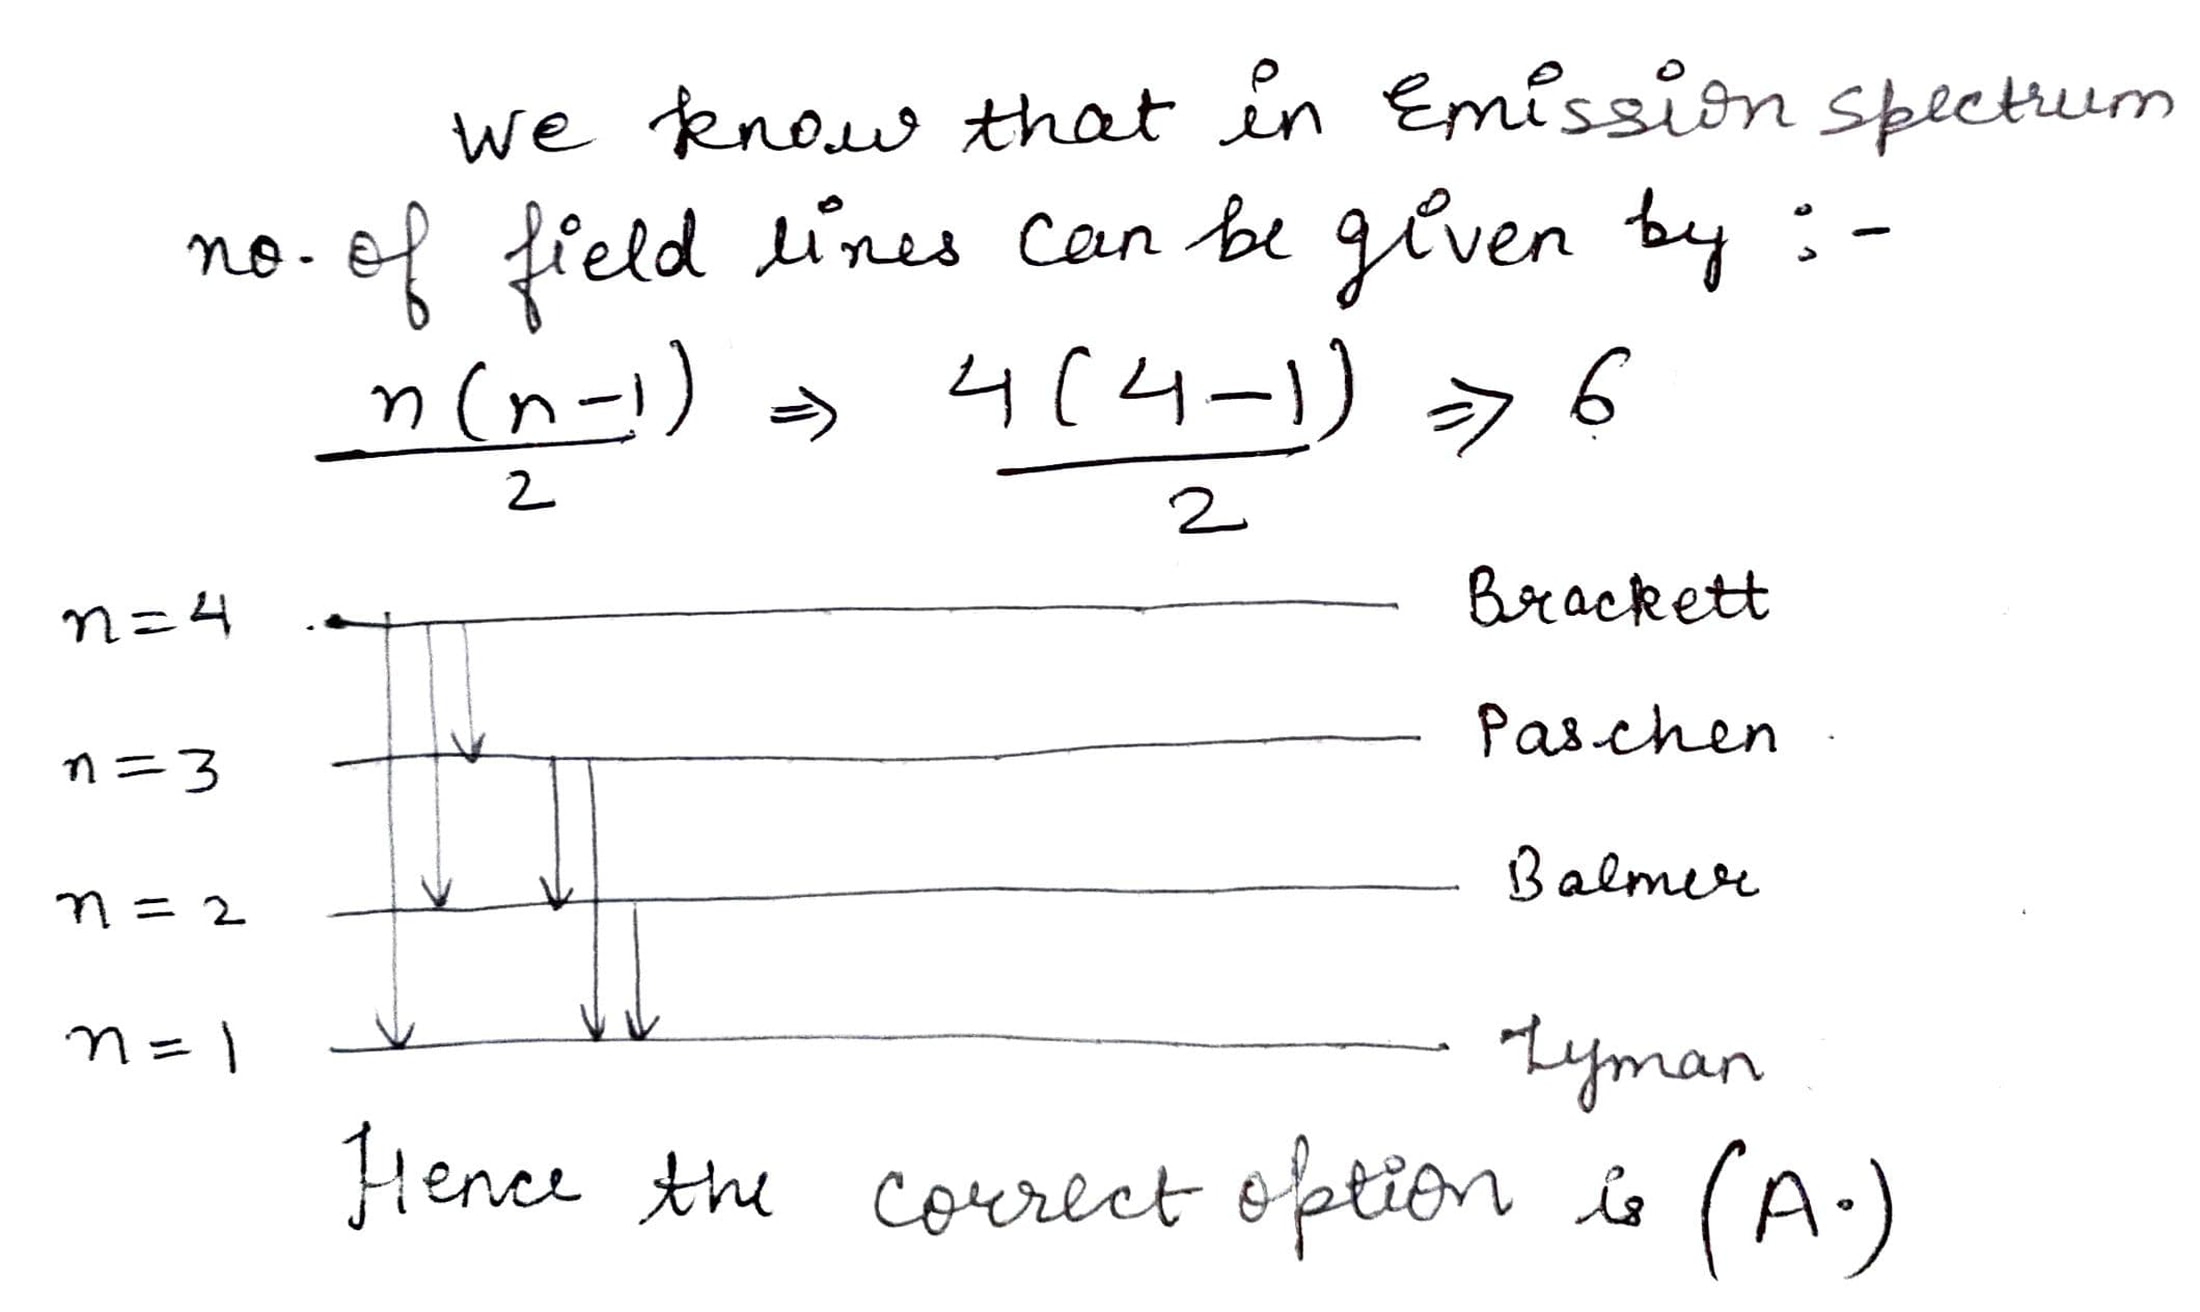 we know that in Emission spectrum
no. of field lines can be given by :-
n(n-1)/2 ⇒ 4(4-1)/2 ⇒ 6
n=4 Brackett
n=3 Paschen
n=2 Balmer
n=1 Lyman
Hence the correct option is (A.)